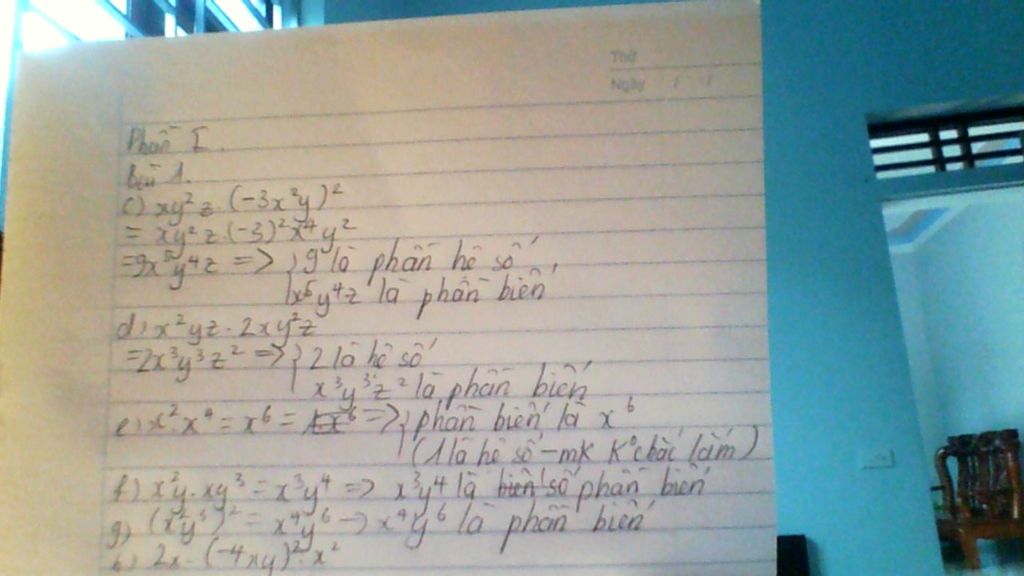 Thứ
Ngày / /
Phần I.
Bài 1.
c) xy²z . (-3x²y)²
= xy²z.(-3)²x⁴y²
=9x⁵y⁴z => { 9 là phần hệ số
x⁵y⁴z là phần biến
d) x²yz . 2xy²z
=2x³y³z² => { 2 là hệ số
x³y³z² là phần biến
e) x².x⁴ = x⁶ = 1x⁶ => { phần biến là x⁶
(1 là hệ số - mk K° chắc lắm)
f) x²y.xy³ = x³y⁴ => x³y⁴ là biến số phần biến
g) (x²y³)² = x⁴y⁶ -> x⁴y⁶ là phần biến
h) 2x . (-4xy)².x²